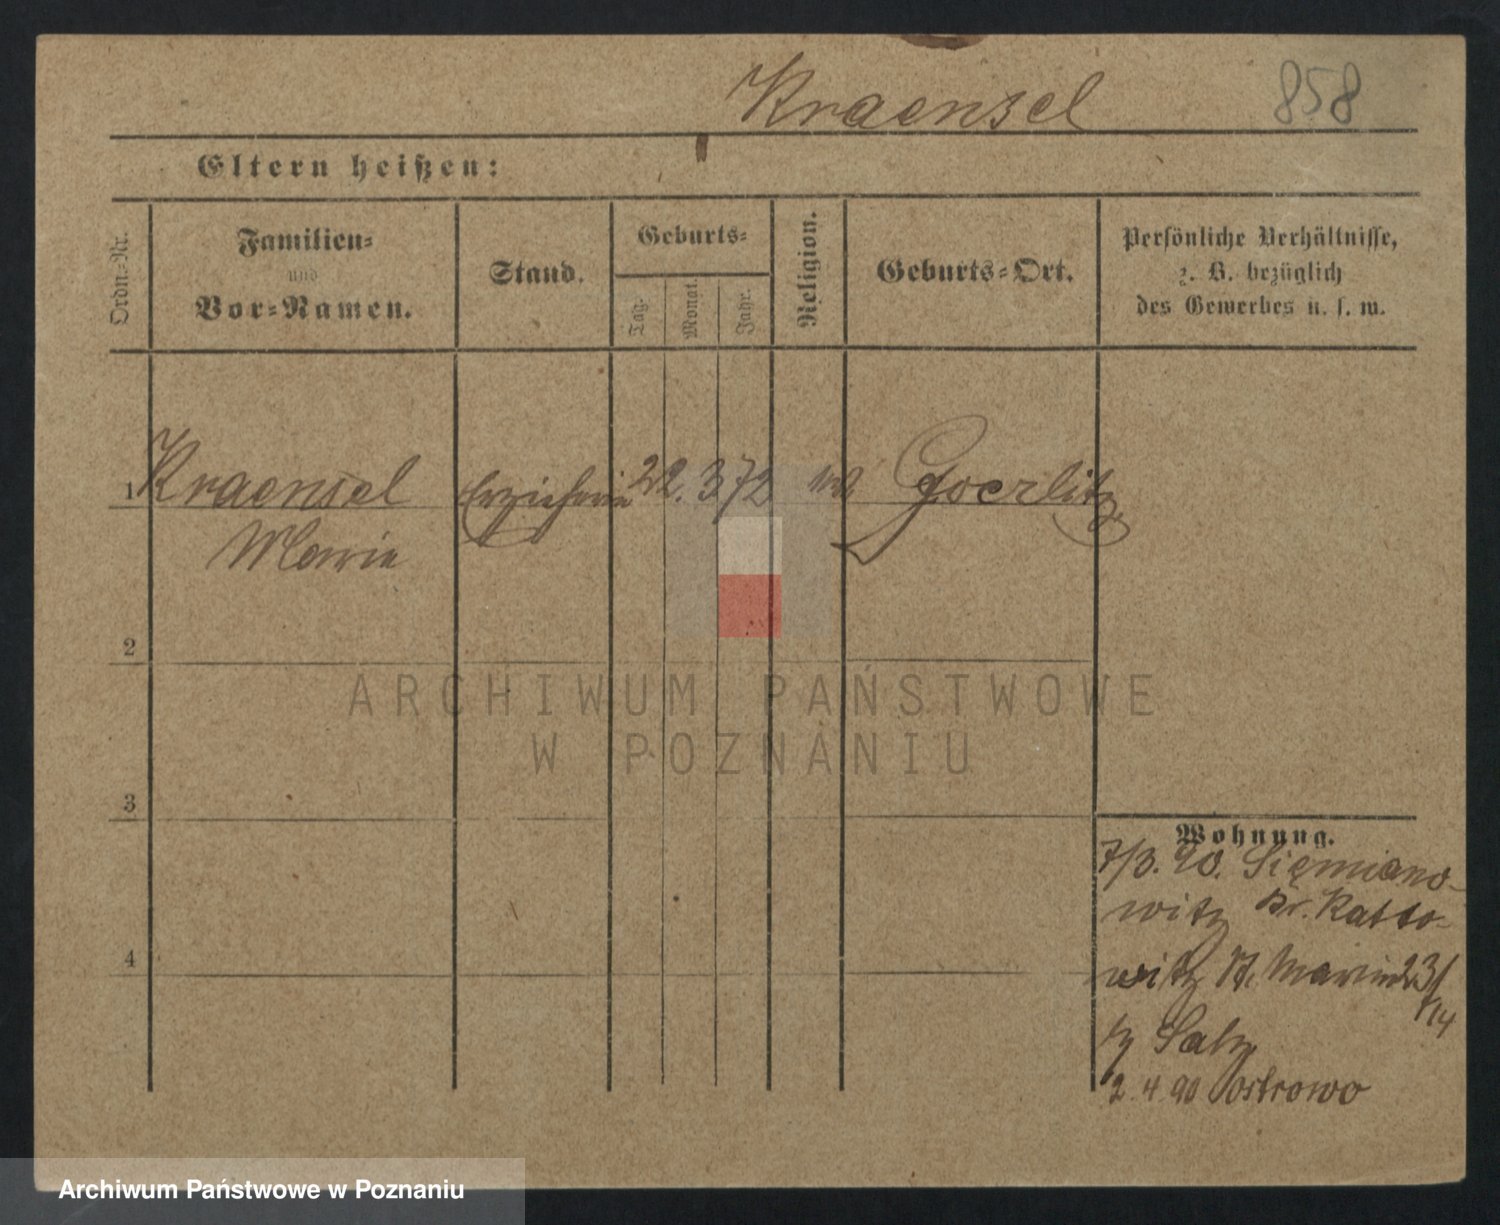 Kraensel 858
Eltern heißen:
Ordn=Nr.
Familien=
und
Vor=Namen.
Stand.
Geburts=
Tag.
Monat.
Jahr.
Religion.
Geburts=Ort.
Persönliche Verhältnisse,
z. B. bezüglich
des Gewerbes u. s. w.
1 Kraensel Erzieherin 22. 3 72 Goerlitz
Marie
2
3
4
Wohnung.
7/3. 90. Siemiano-
witz Kr. Katto-
witz St. Martin 23/14
bz Salz
2. 4. 90 Ostrowo
ARCHIWUM PAŃSTWOWE
W POZNANIU
Archiwum Państwowe w Poznaniu